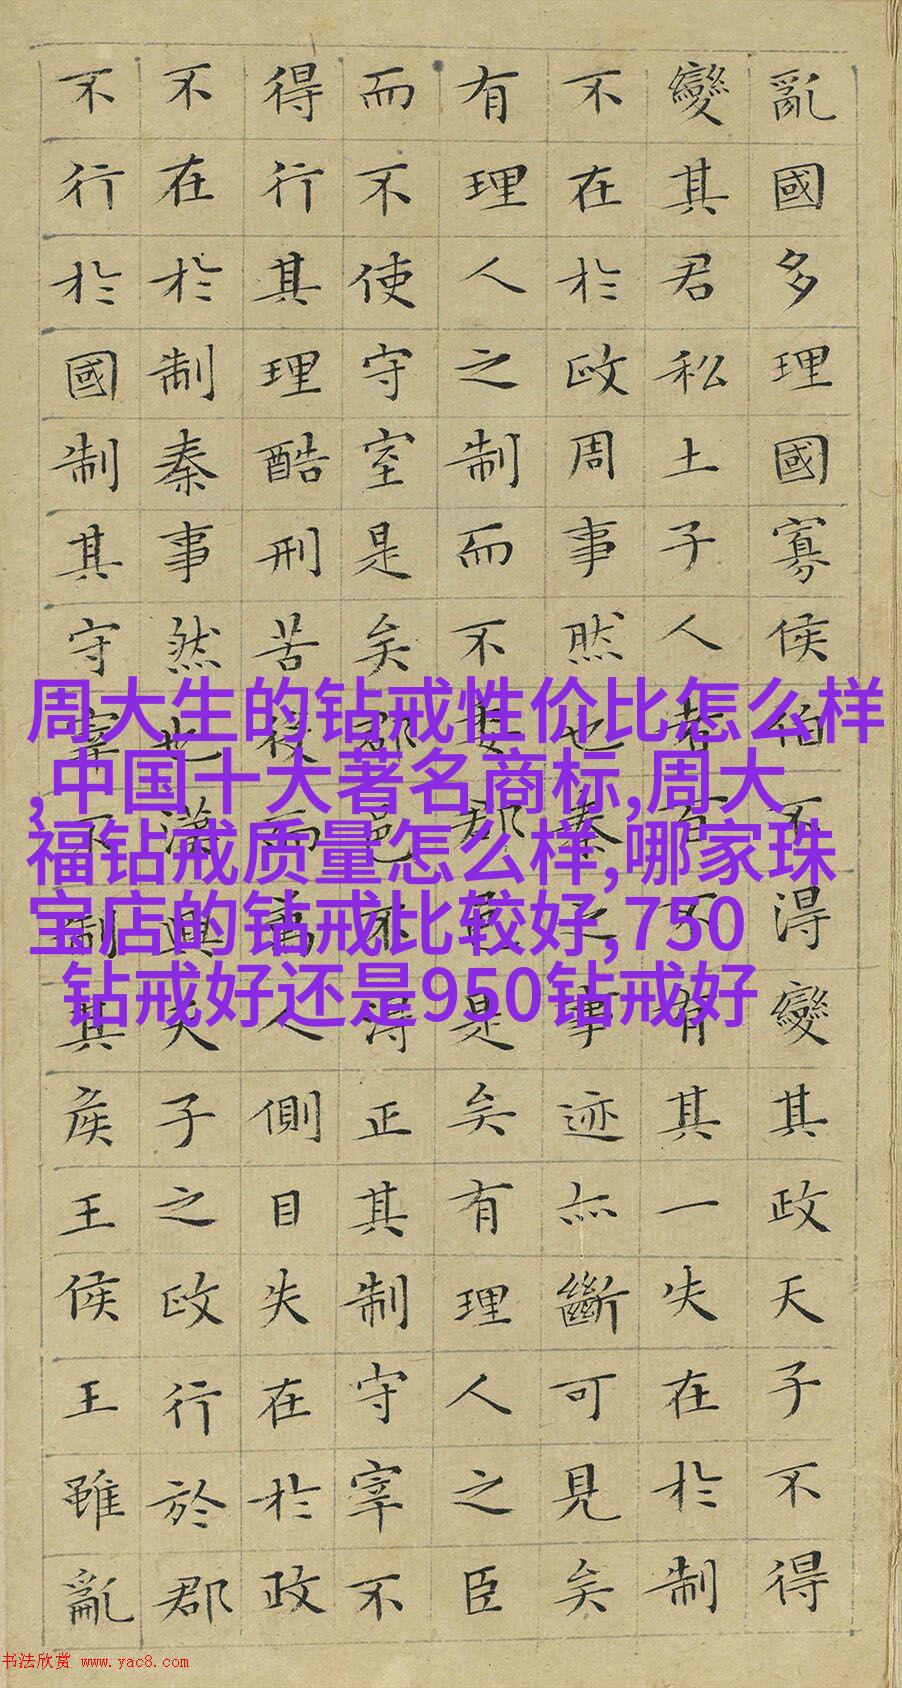 亂國多理國寡侯伯不得變其政天子不得
變其君私土子人者百不有其一失在於制
不在於政周事然也秦之事迹亦斷可見矣
有理人之制而不委郡邑是矣有理人之臣
而不使守宰是矣郡邑不得正其制守宰不
得行其理酷刑苦役而萬人側目失在於政
不在於制秦事然也漢興天子之政行於郡
不行於國制其守宰不制其侯王侯王雖亂
周大生的钻戒性价比怎么样
,中国十大著名商标,周大
福钻戒质量怎么样,哪家珠
宝店的钻戒比较好,750
钻戒好还是950钻戒好
书法欣赏 www.yac8.com